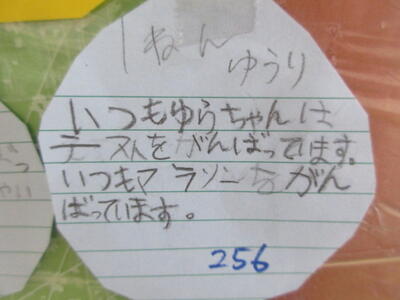 1ねん
ゆうり
いつもゆらちゃんは
テストをがんばっています。
いつもマラソンをがん
ばっています。
256